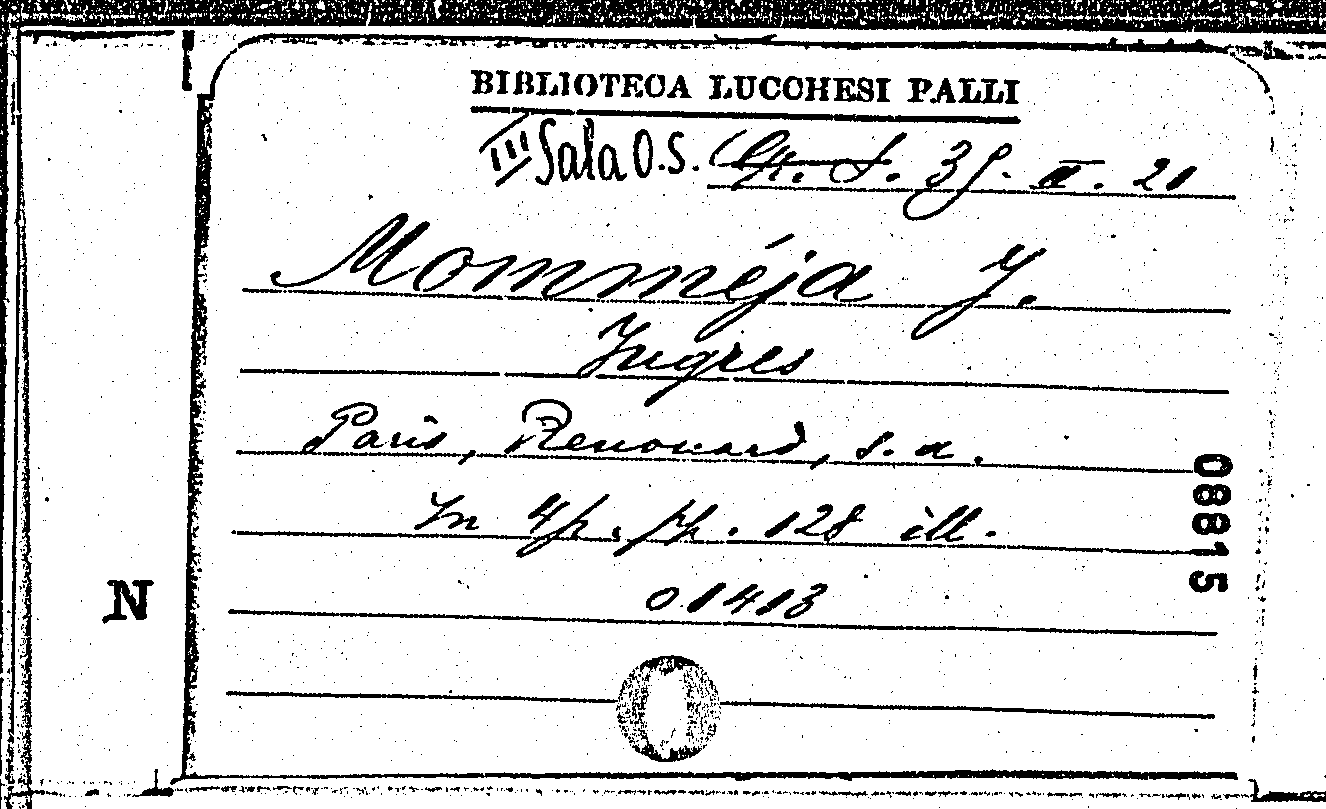 BIBLIOTECA LUCCHESI PALLI
III Sala O.S. 35. II. 20
Momméja J.
Ingres
Paris, Renouard, s. a.
In 4p. pp. 128 ill.
01413
08815
N